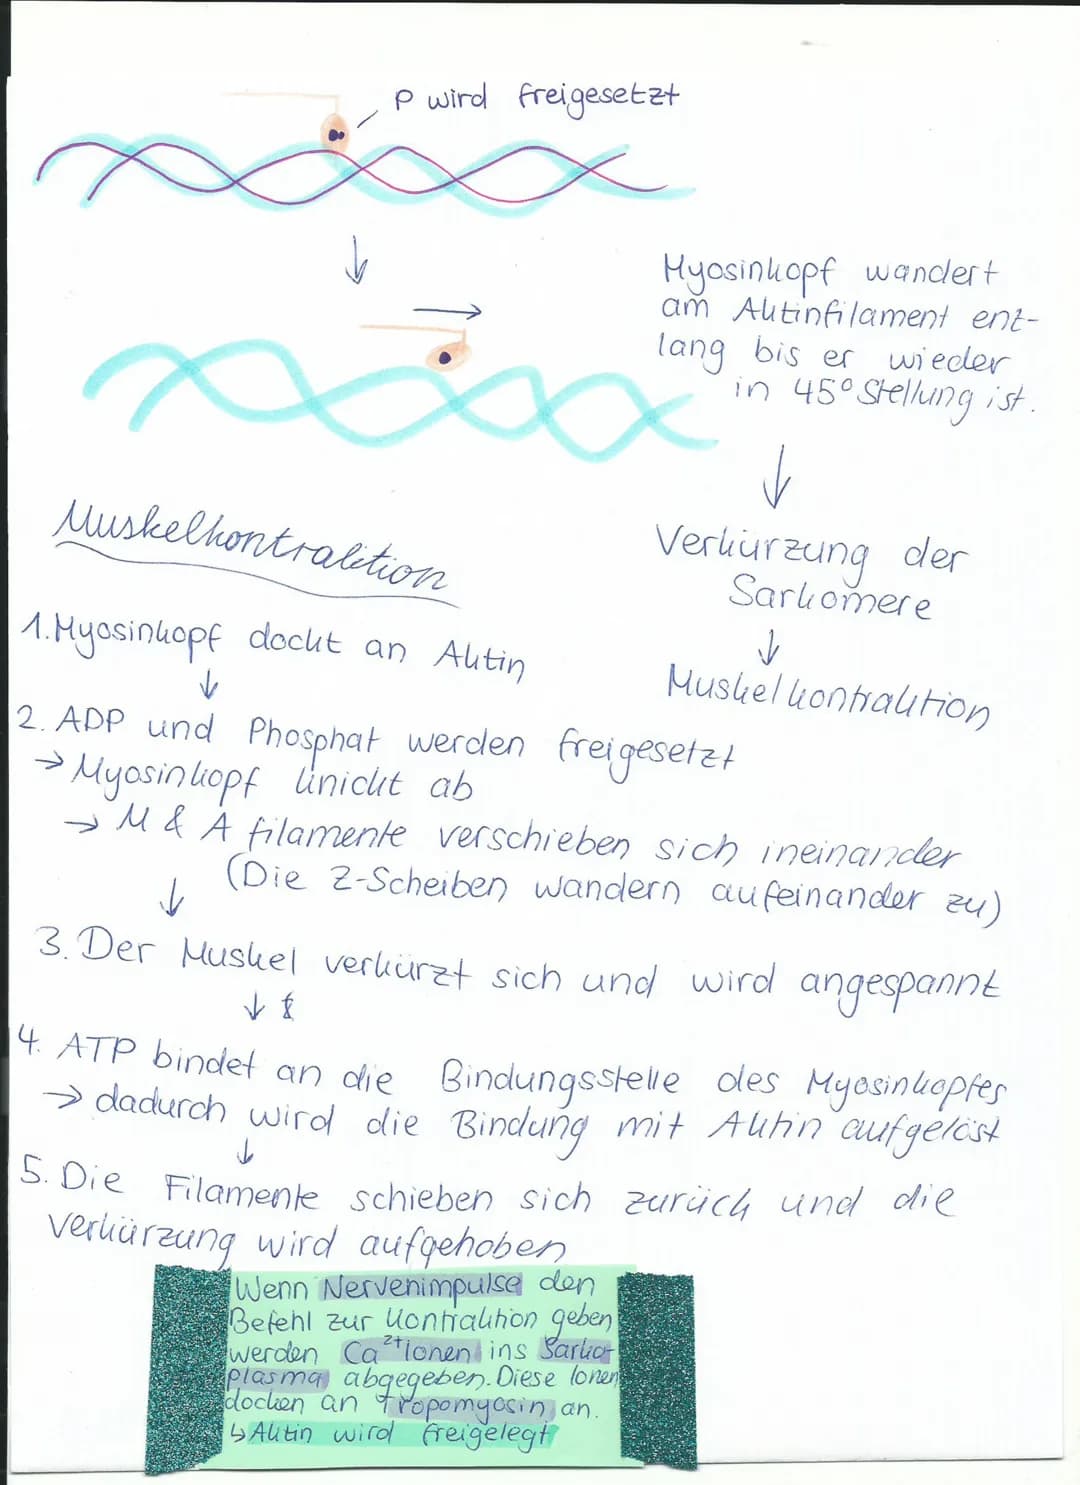 P wird freigesetzt
Myosinkopf wandert
am Aktinfilament ent-
lang bis er wieder
in 45° Stellung ist.
Verkürzung der
Sarkomere
Muskelkontraktion
Muskelkontraktion
1. Myosinkopf dockt an Aktin
2. ADP und Phosphat werden freigesetzt
→ Myosinkopf knickt ab
→ M & A filamente verschieben sich ineinander
(Die Z-Scheiben wandern aufeinander zu)
3. Der Muskel verkürzt sich und wird angespannt
4. ATP bindet an die Bindungsstelle des Myosinkopfes
→ dadurch wird die Bindung mit Aktin aufgelöst
5. Die Filamente schieben sich zurück und die
Verkürzung wird aufgehoben
Wenn Nervenimpulse den
Befehl zur Kontraktion geben
werden Ca²⁺Ionen ins Sarko-
plasma abgegeben. Diese Ionen
docken an Tropomyosin an.
↳ Aktin wird freigelegt